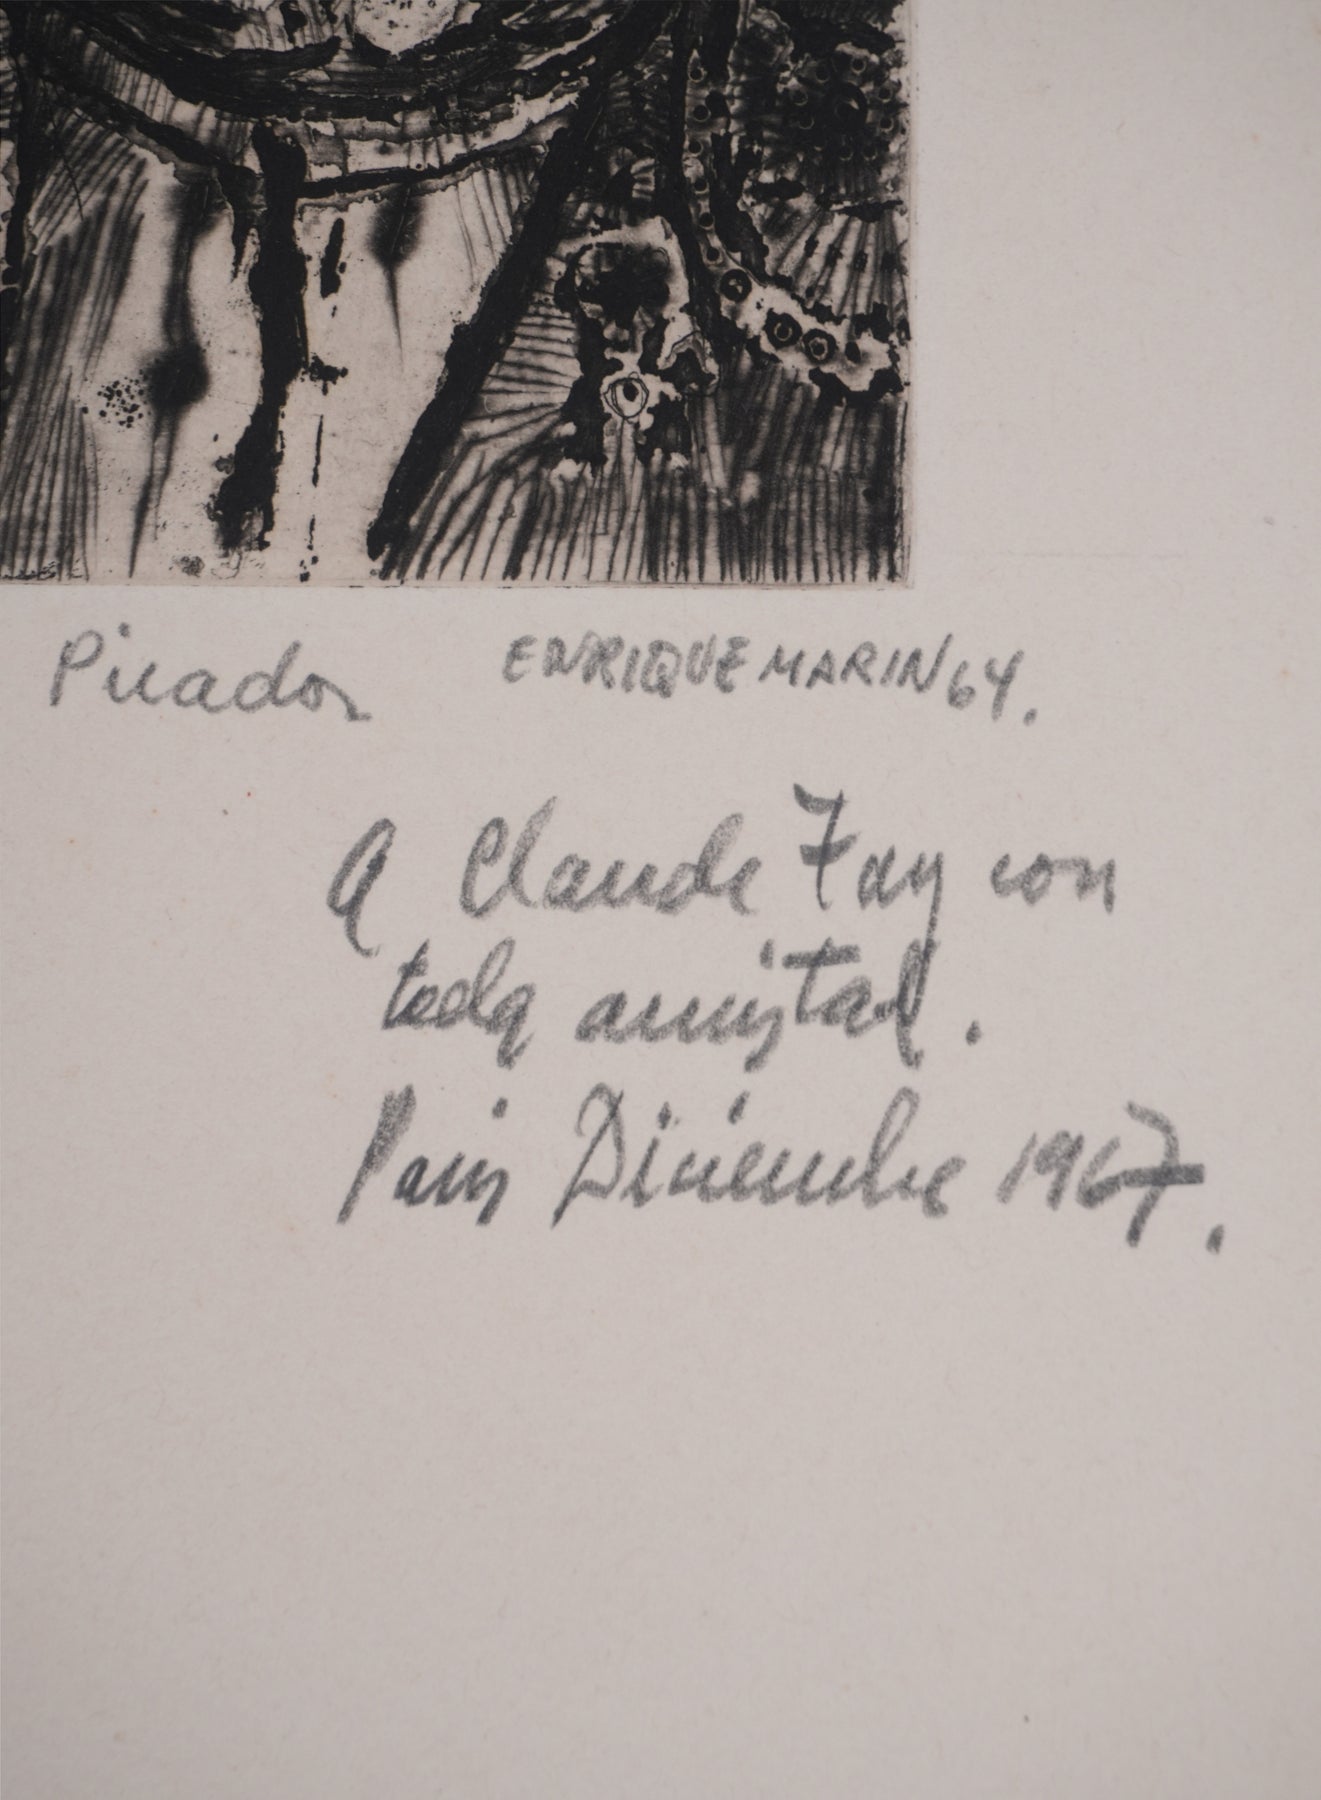 Picador ENRIQUE MARIN 64.
A Claude Fay con
toda amistad.
Paris Diciembre 1967.